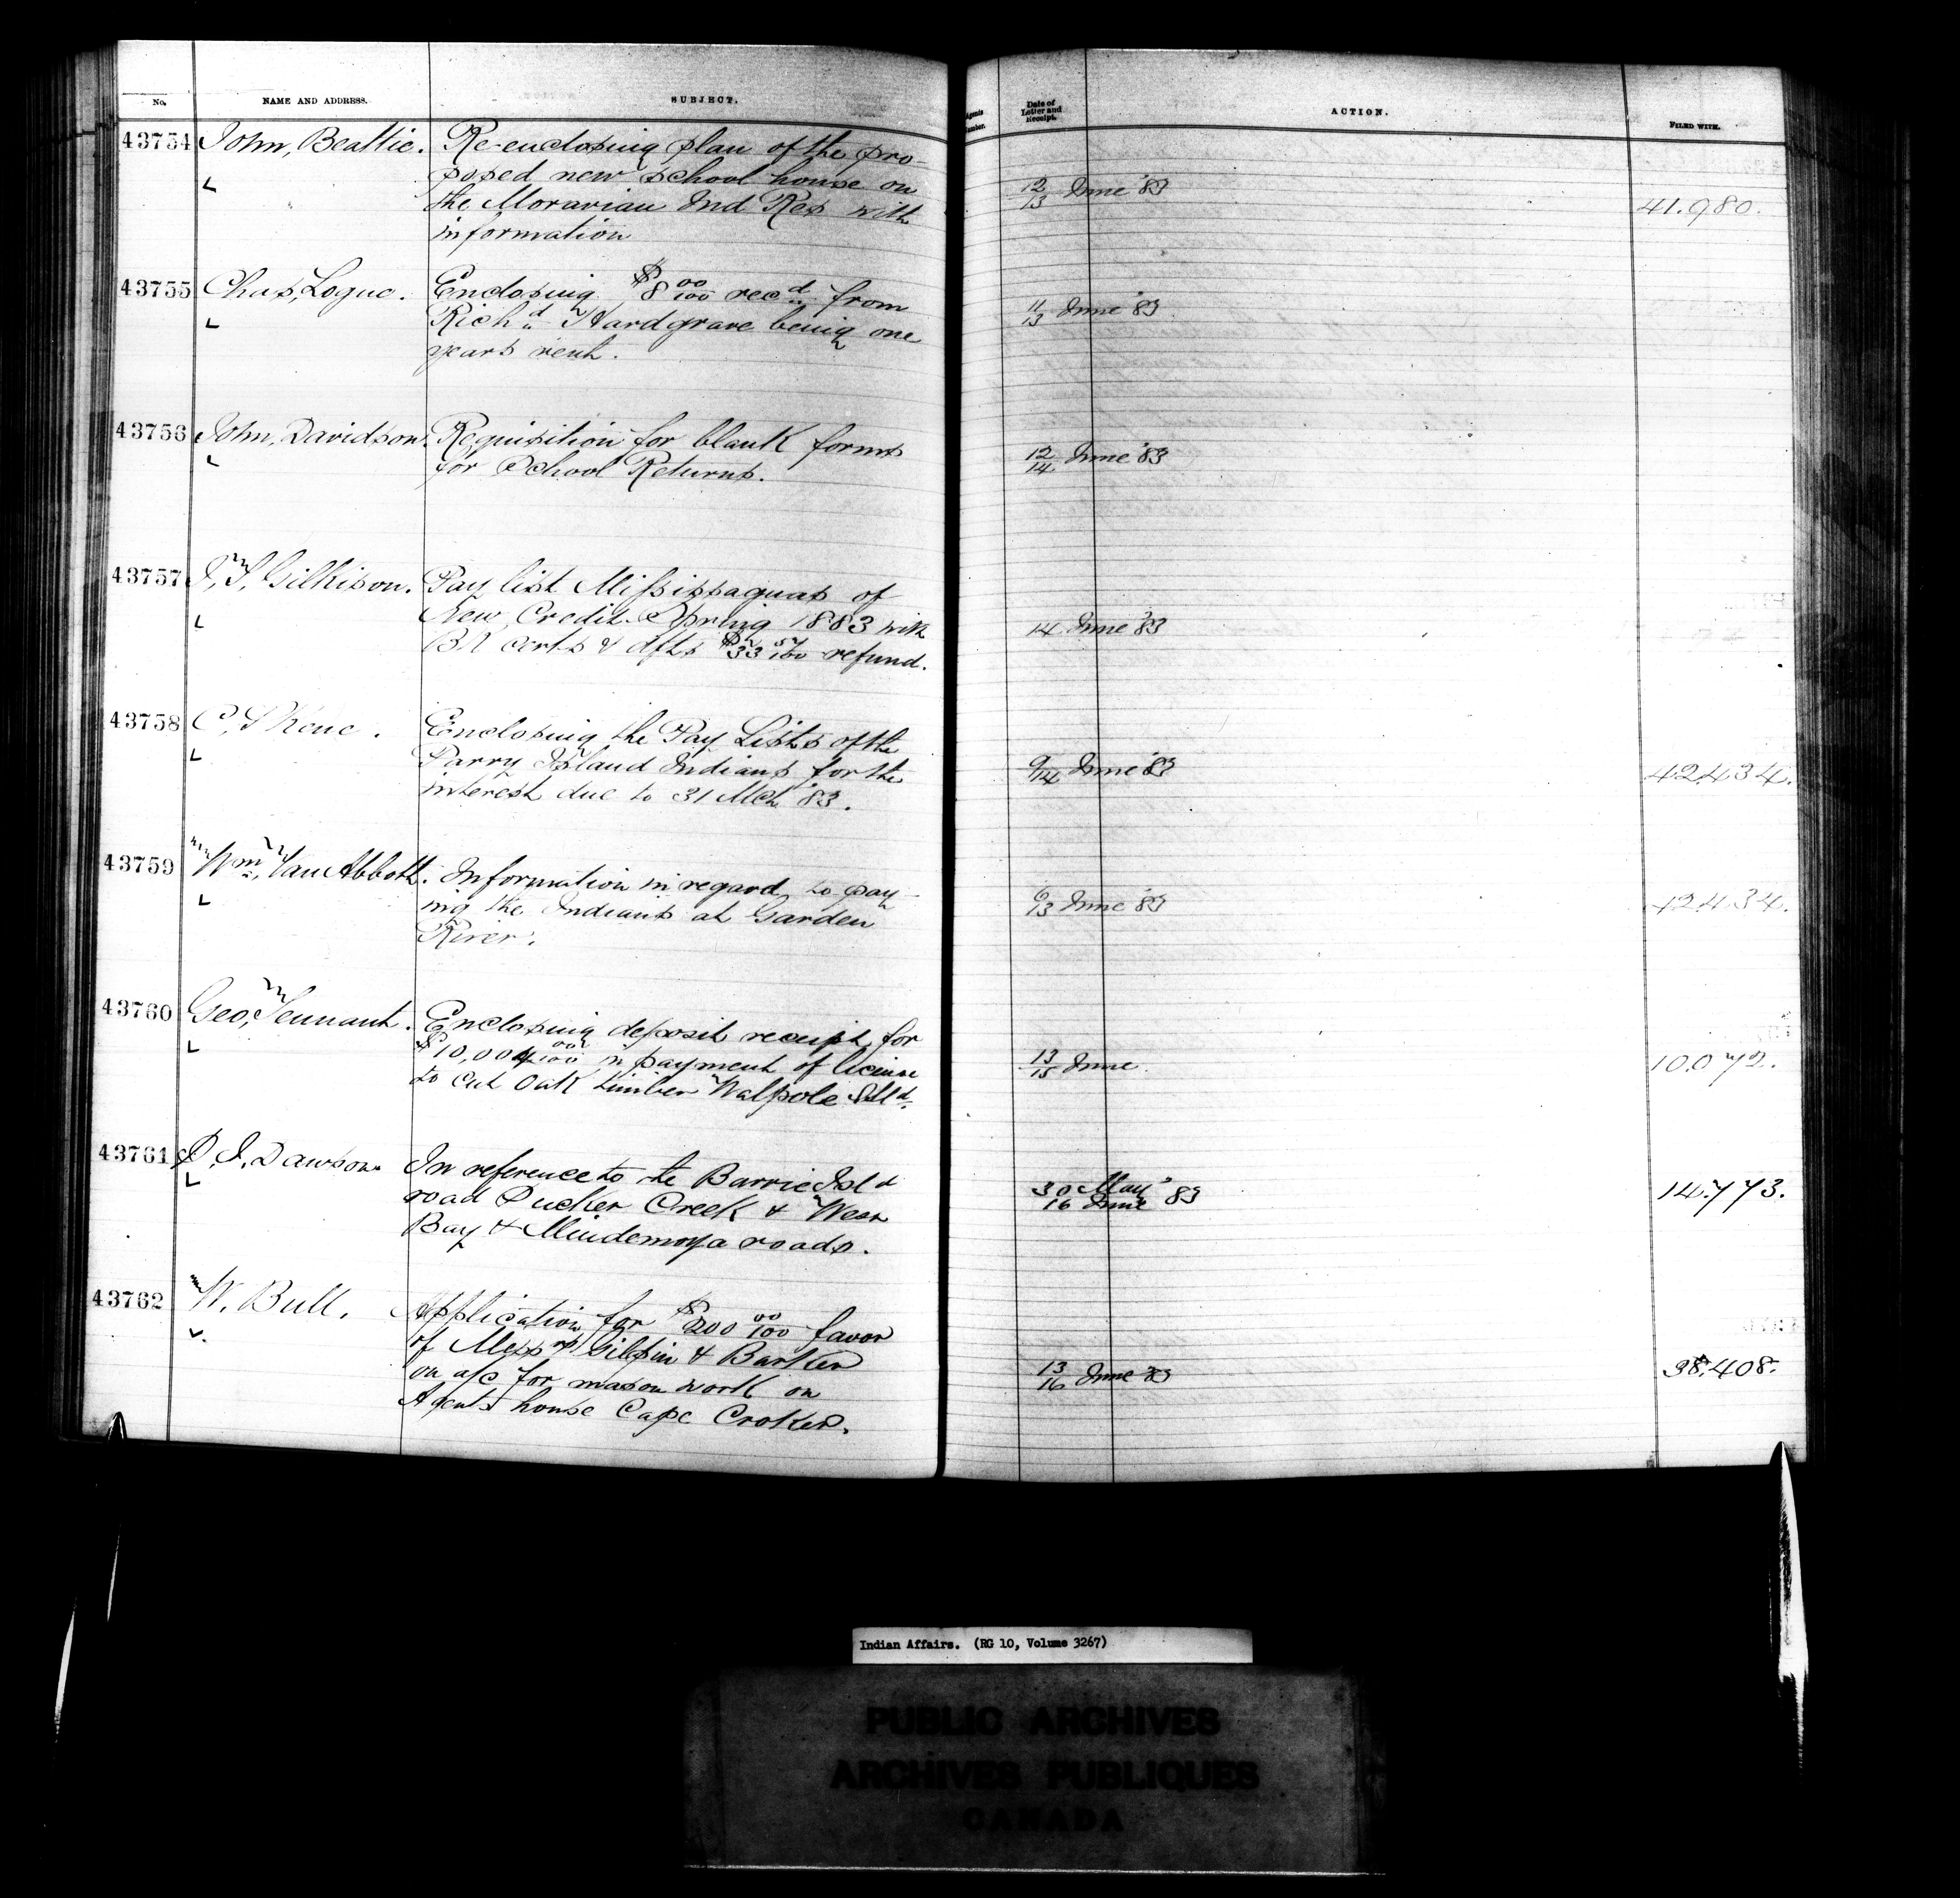 No. NAME AND ADDRESS. SUBJECT. Agents Number. Date of Letter and Receipt. ACTION. FILED WITH.
43754 John, Beattie. Re-enclosing plan of the pro-
posed new school house on
the Moravian Ind Res with
information
12/13 June '83 41.980.
43755 Chas, Logue. Enclosing $8 00/100 recd from
Richd Hardgrave being one
years rent.
11/13 June '83
43756 John, Davidson. Requisition for blank forms
for School Returns.
12/14 June '83
43757 J, T, Gilkison. Pay list Mississaguas of
New Credit Spring 1883 with
BN certs & dfts $33 57/100 refund.
14 June '83
43758 C, Skene. Enclosing the Pay Lists of the
Parry Island Indians for the
interest due to 31 Mch '83.
9/14 June '83 42434.
43759 Wm, Van Abbott. Information in regard to pay-
ing the Indians at Garden
River.
6/13 June '83 42434.
43760 Geo, Tennant. Enclosing deposit receipt for
$10,004 00/100 in payment of license
to cut Oak timber Walpole Isld.
13/15 June 10.072.
43761 S. J. Dawson In reference to the Barrie Isld
road Ducker Creek & West
Bay & Mindemoya roads.
30 May
16 June '83 14.773.
43762 W. Bull. Application for $200 00/100 favor
of Messrs Gilpin & Barker
on a/c for mason work on
Agents house Cape Croker.
13/16 June 83 38,408.
Indian Affairs. (RG 10, Volume 3267)
PUBLIC ARCHIVES
ARCHIVES PUBLIQUES
CANADA